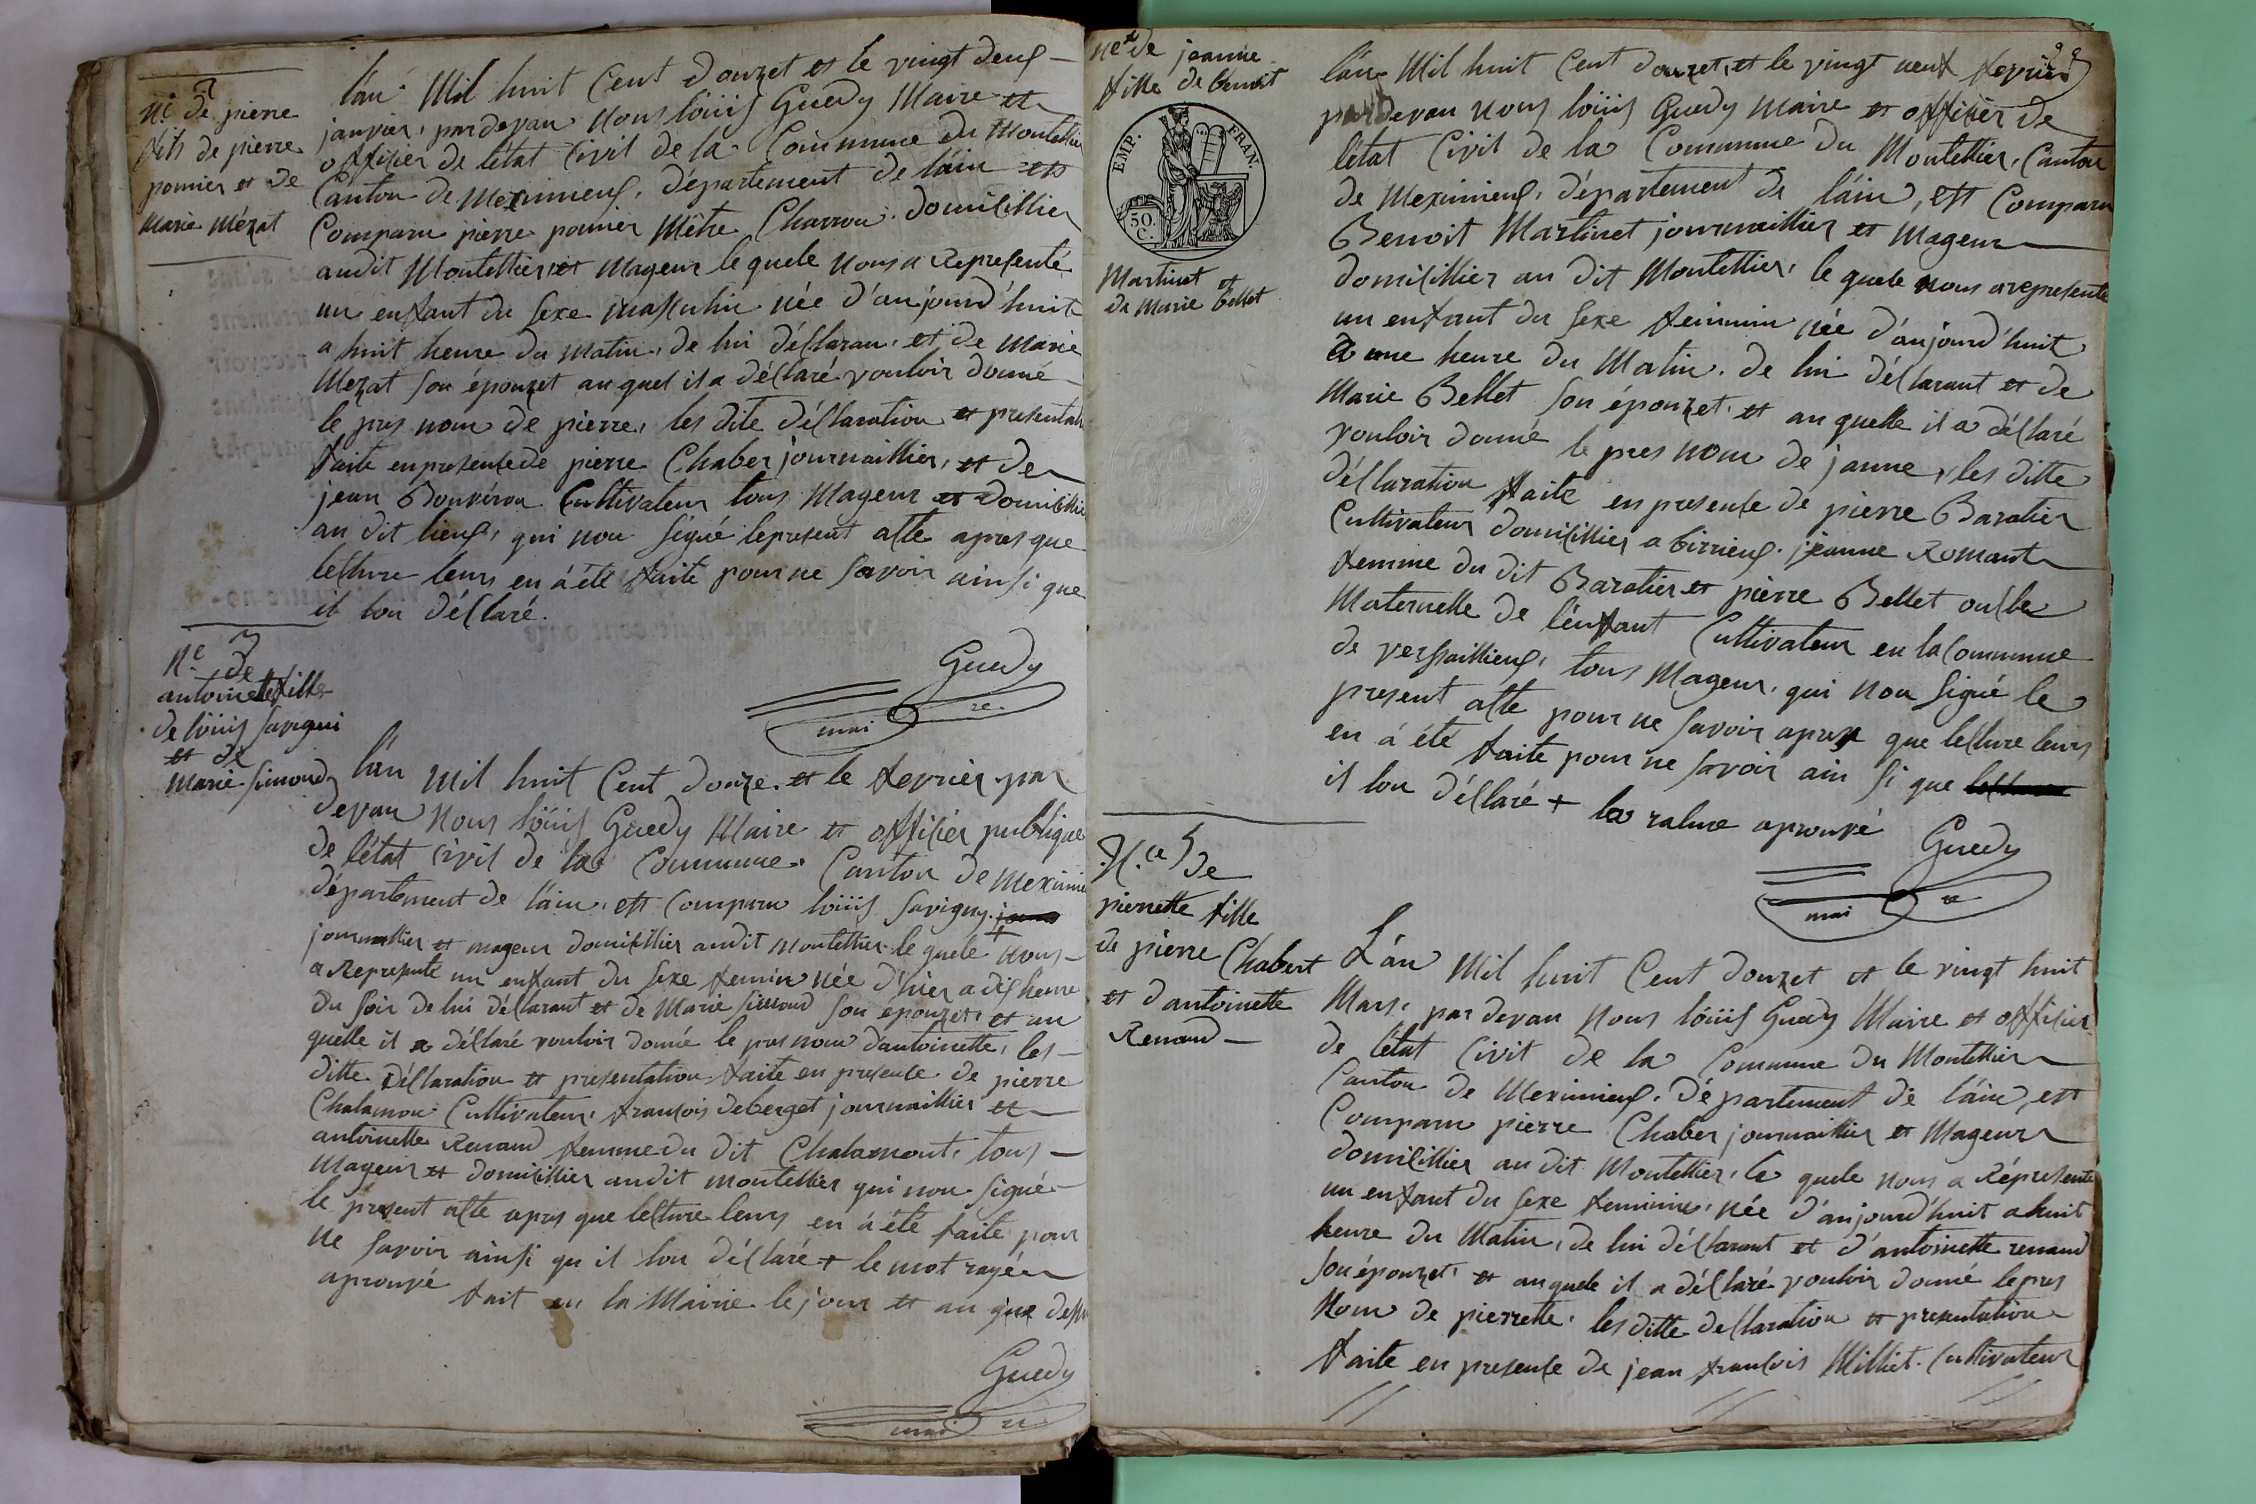 n.e 2 de pierre
fils de pierre
pomier et de
marie mézat
lán Mil huit Cent douzet et le vingt deuf
janvier, pardevan nous löüis Guedy Maire et
offisier de létat Civil de la Commune du Montellier
Canton de Meximieuf, département de láin est
Comparu pierre pomier Mêtre Charron domicillier
audit Montellier, et mageur le quele nous a Represénté
un enfant du sexe masculin née d'aujourd'huit
a huit heure du matin, de lui déclaran, et de marie
Mezat son épouzet auquel il a déclaré vouloir donné
le pres nom de pierre, les dite déclaration et presentation
faite en presence de pierre Chaber journaillier, et de
jean Bouvéron Cultivateur tous mageur et domicillier
au dit lieuf, qui non signé le present acte apres que
lecture leurs en á été faite pour ne savoir ainsi que
il lon déclaré.
Guedy
maire
N.e 3
de
antoinette fille
de löüis Savigni
et de
marie Simond
lán mil huit Cent douze et le fevrier par
devan nous löüis Guedy Maire et offisier publique
de létat civil de la Commune, Canton de Meximieu
département de láin, est Comparu löüis Savigny
journallier et mageur domicillier audit montellier le quele nous
a Represente un enfant du sexe feminin née d'hier a dis heure
du soir de lui déclarant et de Marie Simond son épouzet, et au
quelle il a déclaré vouloir donné le pres nom dantoinette, les
ditte déclaration et présentation faite en presence de pierre
Chalamon Cultivateur, francois deberget journaillier et
antoinette Renaud femme du dit Chalamont, tous
mageur et domicillier audit montellier qui non signé
le present acte apres que lecture leurs en á été faite pour
ne savoir ainsi qu il lon déclaré + le mot rayér
aprouvé fait en la Mairie le jour et an que dessu
Guedy
maire
ne 4 de jeanne
fille de benoit
EMP. FRAN.
50.
C.
Martinet et
de Marie bellet
lán Mil huit Cent douzet, et le vingt neuf fevrier
pardevan nous löüis Guedy maire et offisier de
létat Civil de la Commune du Montellier, Canton
de Meximieuf, département de láin, est Comparu
Benoit Martinet journaillier et Mageur
domicillier au dit Montellier, le quele nous a represente
un enfant du sexe feminin née d'aujourd'huit
a une heure du Matin, de lui déclarant et de
Marie Bellet son épouzet, et au quelle il a déclaré
vouloir donné le pres nom de janne, les ditte
déclaration faite en presence de pierre Baratier
Cultivateur domicillier a birrieuf, jeanne Romant
femme du dit Baratier et pierre Bellet oncle
Maternelle de lénfant Cultivateur en la Commune
de versaillieuf, tous Mageur, qui non signé le
present acte pour ne savoir apres que lecture leurs
en á été faite pour ne savoir ain si que
il lon déclaré + la rature aprouvé
Guedy
maire
N.ce 5 de
pierrette fille
de pierre Chabert
et dantoinette
Renaud
Lán Mil huit Cent douzet et le vingt huit
Mars, par devan nous löüis Guedy Maire et offisier
de létat Civit de la Commune du Montellier
Canton de Meximieuf, département de láin, est
Comparu pierre Chaber journaillier et Mageur
domicillier au dit Montellier, le quele nous a Réprésente
un enfant du sexe feminin, née d'aujourd'huit a huit
heure du Matin, de lui déclarant et d'antoinette renaud
son épouzet, et au quele il a déclaré vouloir donné le pres
nom de pierrette, les ditte declaration et presentation
faite en presence de jean francois Milliet Cultivateur